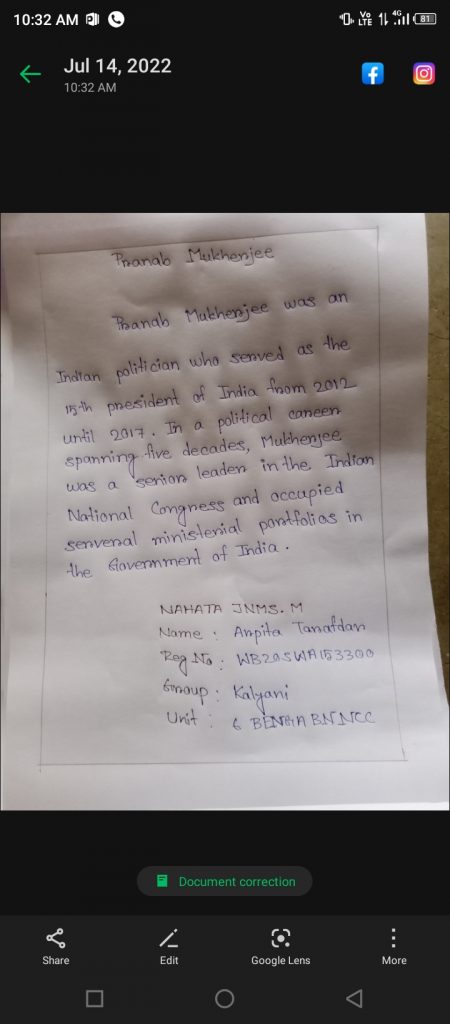 10:32 AM
Vo LTE 4G 81
Jul 14, 2022
10:32 AM
Pranab Mukherjee
Pranab Mukherjee was an
Indian politician who served as the
15th president of India from 2012
until 2017. In a political career
spanning five decades, Mukherjee
was a senior leader in the Indian
National Congress and occupied
serveral ministerial portfolios in
the Government of India.
NAHATA JNMS.M
Name : Arpita Tarafdar
Reg No : WB20SWA153300
Group : Kalyani
Unit : 6 BENGHA BN NCC
Document correction
Share Edit Google Lens More